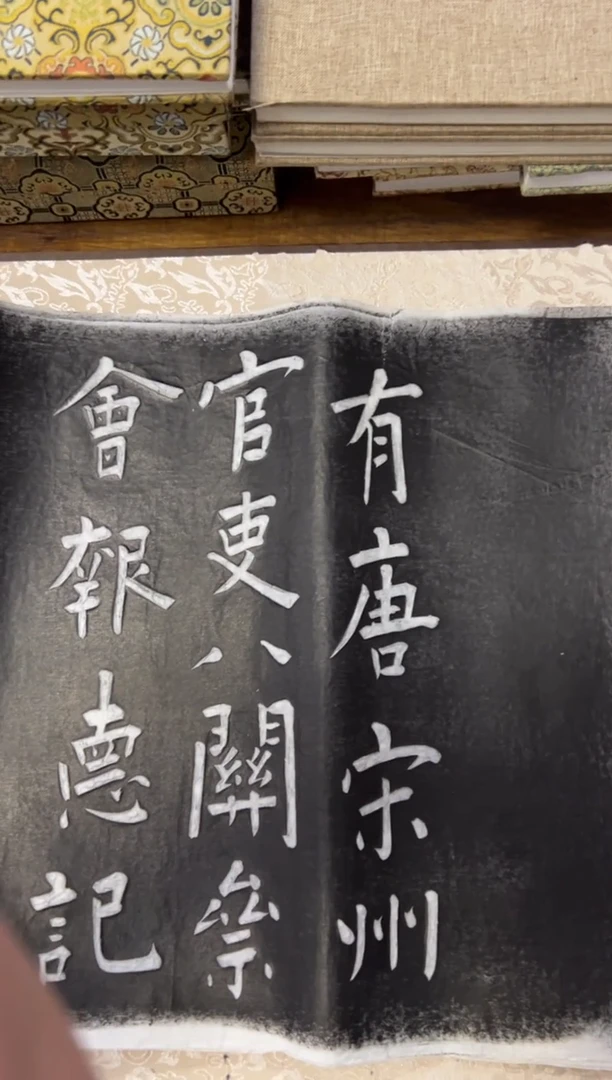 有唐宋州
官吏八關齋
會報悳記